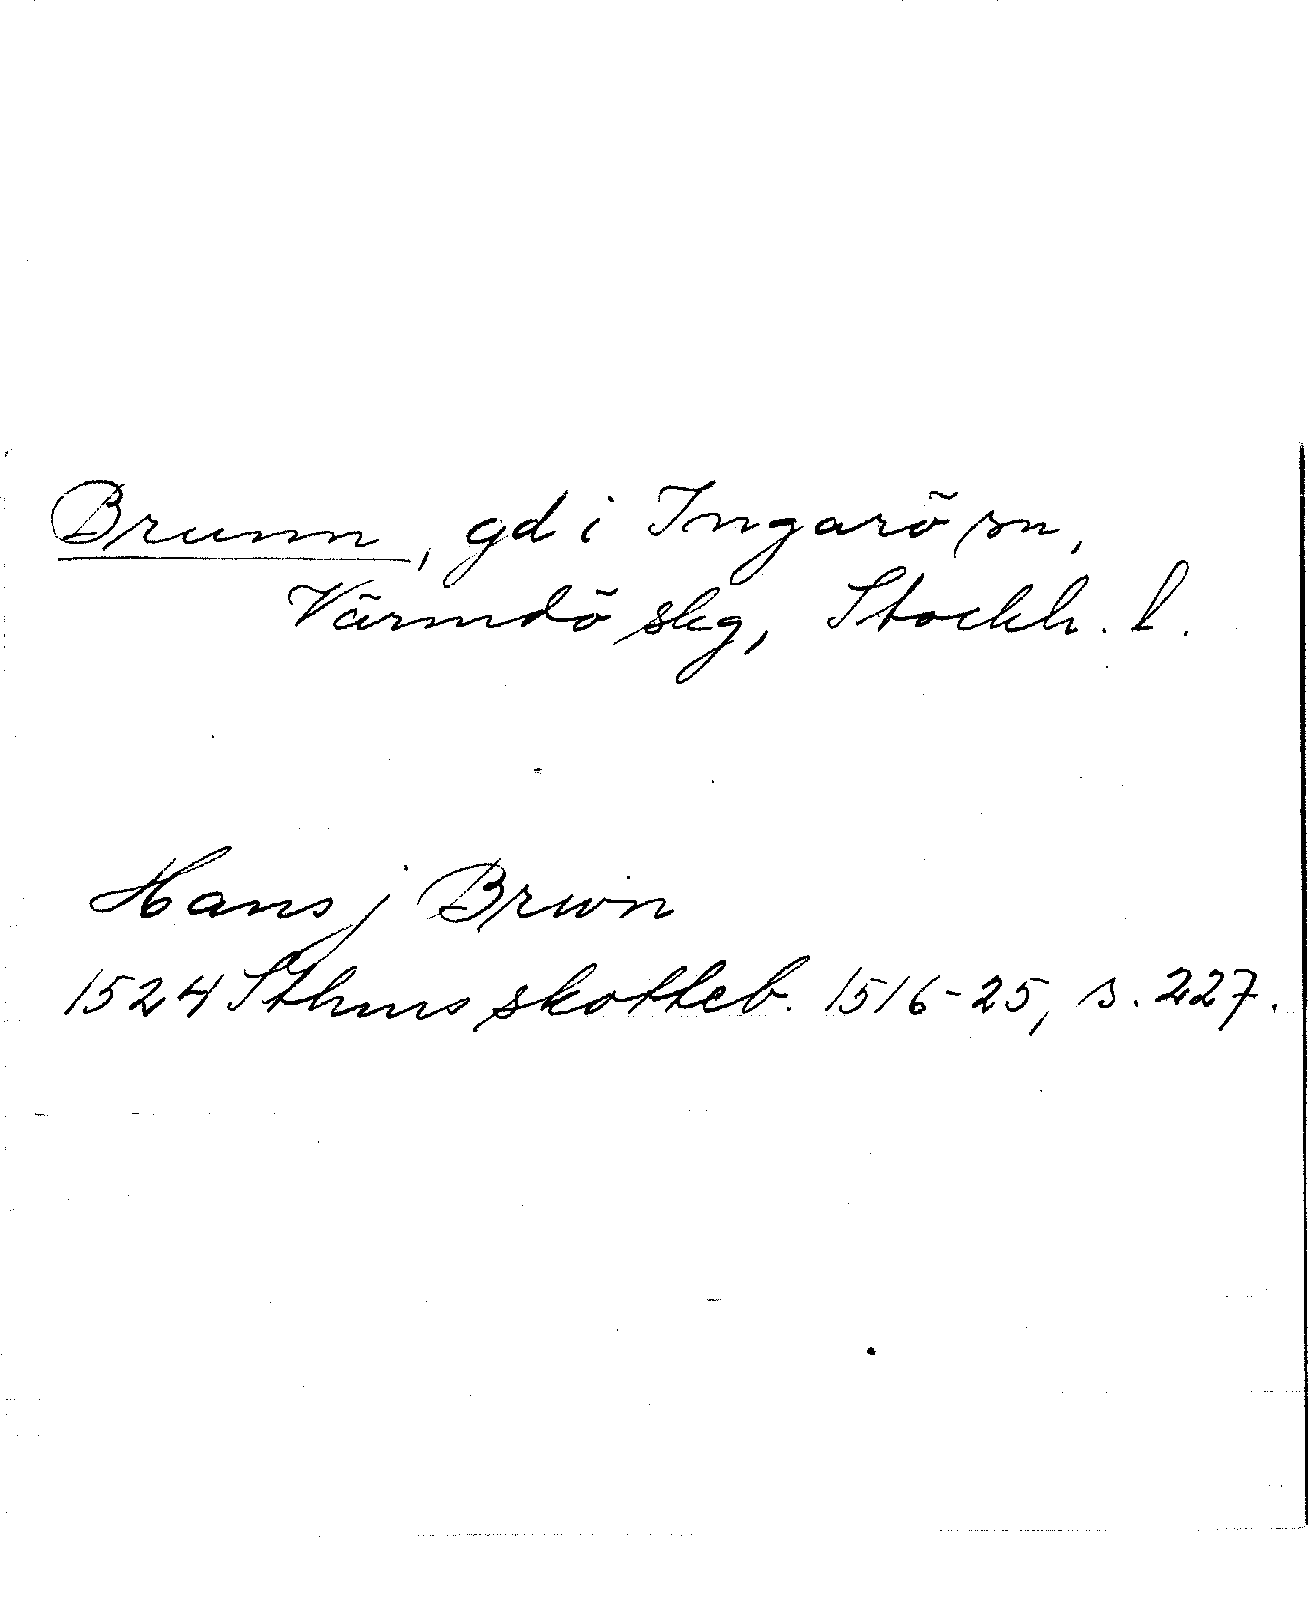 Brunn, gd i Ingarö sn,
Värmdö skg, Stockh. l.
Hans j Brwn
1524 Sthms skotteb. 1516-25, s. 227.